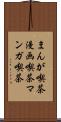 まんが喫茶
漫画喫茶マ
ンガ喫茶